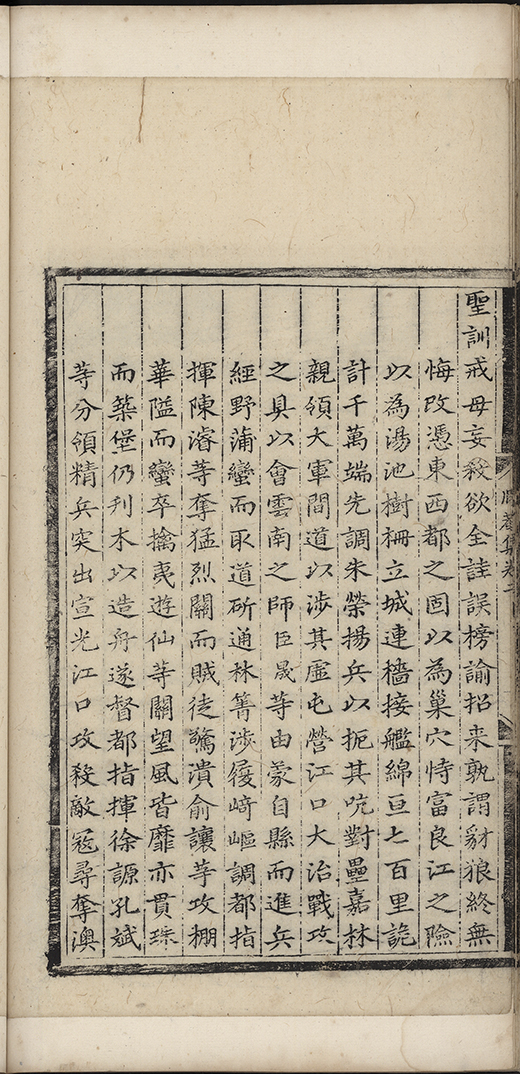 聖訓戒毋妄殺欲全詿誤榜諭招来孰謂豺狼終無
悔改憑東西都之固以為巢穴恃富良江之險
以為湯池樹柵立城連檣接艦綿亘七百里詭
計千萬端先調朱榮揚兵以扼其吭對壘嘉林
親領大軍間道以涉其虛屯營江口大治戰攻
之具以會雲南之師臣晟等由蒙自縣而進兵
經野蒲蠻而取道斫通林箐涉履崎嶇調都指
揮陳濬等奪猛烈關而賊徒驚潰俞讓等攻棚
華隘而蠻卒擒夷遊仙等關望風皆靡亦貫珠
而築堡仍刋木以造舟遂督都指揮徐諒孔斌
等分領精兵突出宣光江口攻殺敵寇尋奪澳